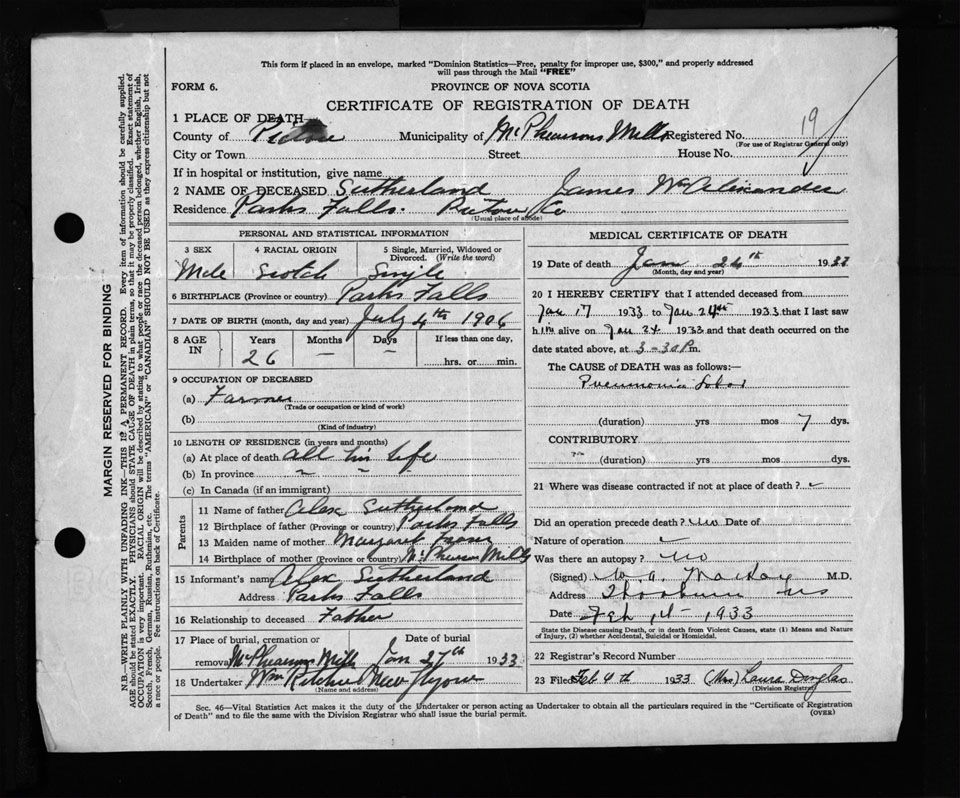 This form if placed in an envelope, marked "Dominion Statistics—Free, penalty for improper use, $300," and properly addressed
will pass through the Mail "FREE"
FORM 6.
PROVINCE OF NOVA SCOTIA
CERTIFICATE OF REGISTRATION OF DEATH
19
1 PLACE OF DEATH—
County of Pictou Municipality of McPhersons Mills Registered No.
(For use of Registrar General only)
City or Town Street House No.
If in hospital or institution, give name
2 NAME OF DECEASED Sutherland James Wm Alexander
Residence Parks Falls. Pictou Co
(Usual place of abode)
PERSONAL AND STATISTICAL INFORMATION
3 SEX 4 RACIAL ORIGIN 5 Single, Married, Widowed or
Divorced. (Write the word)
Male Scotch Single
6 BIRTHPLACE (Province or country) Parks Falls
7 DATE OF BIRTH (month, day and year) July 4th 1906
8 AGE IN Years Months Days If less than one day,
26 — — hrs. or min.
9 OCCUPATION OF DECEASED
(a) Farmer
(Trade or occupation or kind of work)
(b)
(Kind of industry)
10 LENGTH OF RESIDENCE (in years and months)
(a) At place of death all his life
(b) In province
(c) In Canada (if an immigrant)
Parents
11 Name of father Alex Sutherland
12 Birthplace of father (Province or country) Parks Falls
13 Maiden name of mother Margaret Fraser
14 Birthplace of mother (Province or country) McPherson Mills
15 Informant's name Alex Sutherland
Address Parks Falls
16 Relationship to deceased Father
17 Place of burial, cremation or Date of burial
removal McPhersons Mills Jan 27th 1933
18 Undertaker Wm Ritchie New Glasgow
(Name and address)
MEDICAL CERTIFICATE OF DEATH
19 Date of death Jan 24th 1933
(Month, day and year)
20 I HEREBY CERTIFY that I attended deceased from
Jan 17 1933 to Jan 24th 1933 that I last saw
him alive on Jan 24 1933 and that death occurred on
date stated above, at 3-30 P m.
The CAUSE of DEATH was as follows:—
Pneumonia Lobar
(duration) yrs mos 7 dys.
CONTRIBUTORY
(duration) yrs. mos dys.
21 Where was disease contracted if not at place of death?
Did an operation precede death? no Date of
Nature of operation
Was there an autopsy? no
(Signed) W. A. MacKay M.D.
Address Thorburn NS
Date Feb 1st 1933
State the Disease causing Death, or in death from Violent Causes, state (1) Means and Nature
of Injury, (2) whether Accidental, Suicidal or Homicidal.
22 Registrar's Record Number
23 Filed Feb 4th 1933 (Mrs) Laura Douglas
(Division Registrar)
Sec. 46—Vital Statistics Act makes it the duty of the Undertaker or person acting as Undertaker to obtain all the particulars required in the "Certificate of Registration
of Death" and to file the same with the Division Registrar who shall issue the burial permit.
(OVER)
MARGIN RESERVED FOR BINDING
N.B.—WRITE PLAINLY WITH UNFADING INK—THIS IS A PERMANENT RECORD. Every item of information should be carefully supplied.
AGE should be stated EXACTLY. PHYSICIANS should STATE CAUSE OF DEATH in plain terms, so that it may be properly classified. Exact statement of
OCCUPATION is very important. RACIAL ORIGIN will be described by stating to what people or race the deceased person belonged, whether English, Irish,
Scotch, French, German, Russian, Ruthenian, etc. The terms "AMERICAN" or "CANADIAN" SHOULD NOT BE USED as they express citizenship but not
a race or people. See instructions on back of Certificate.